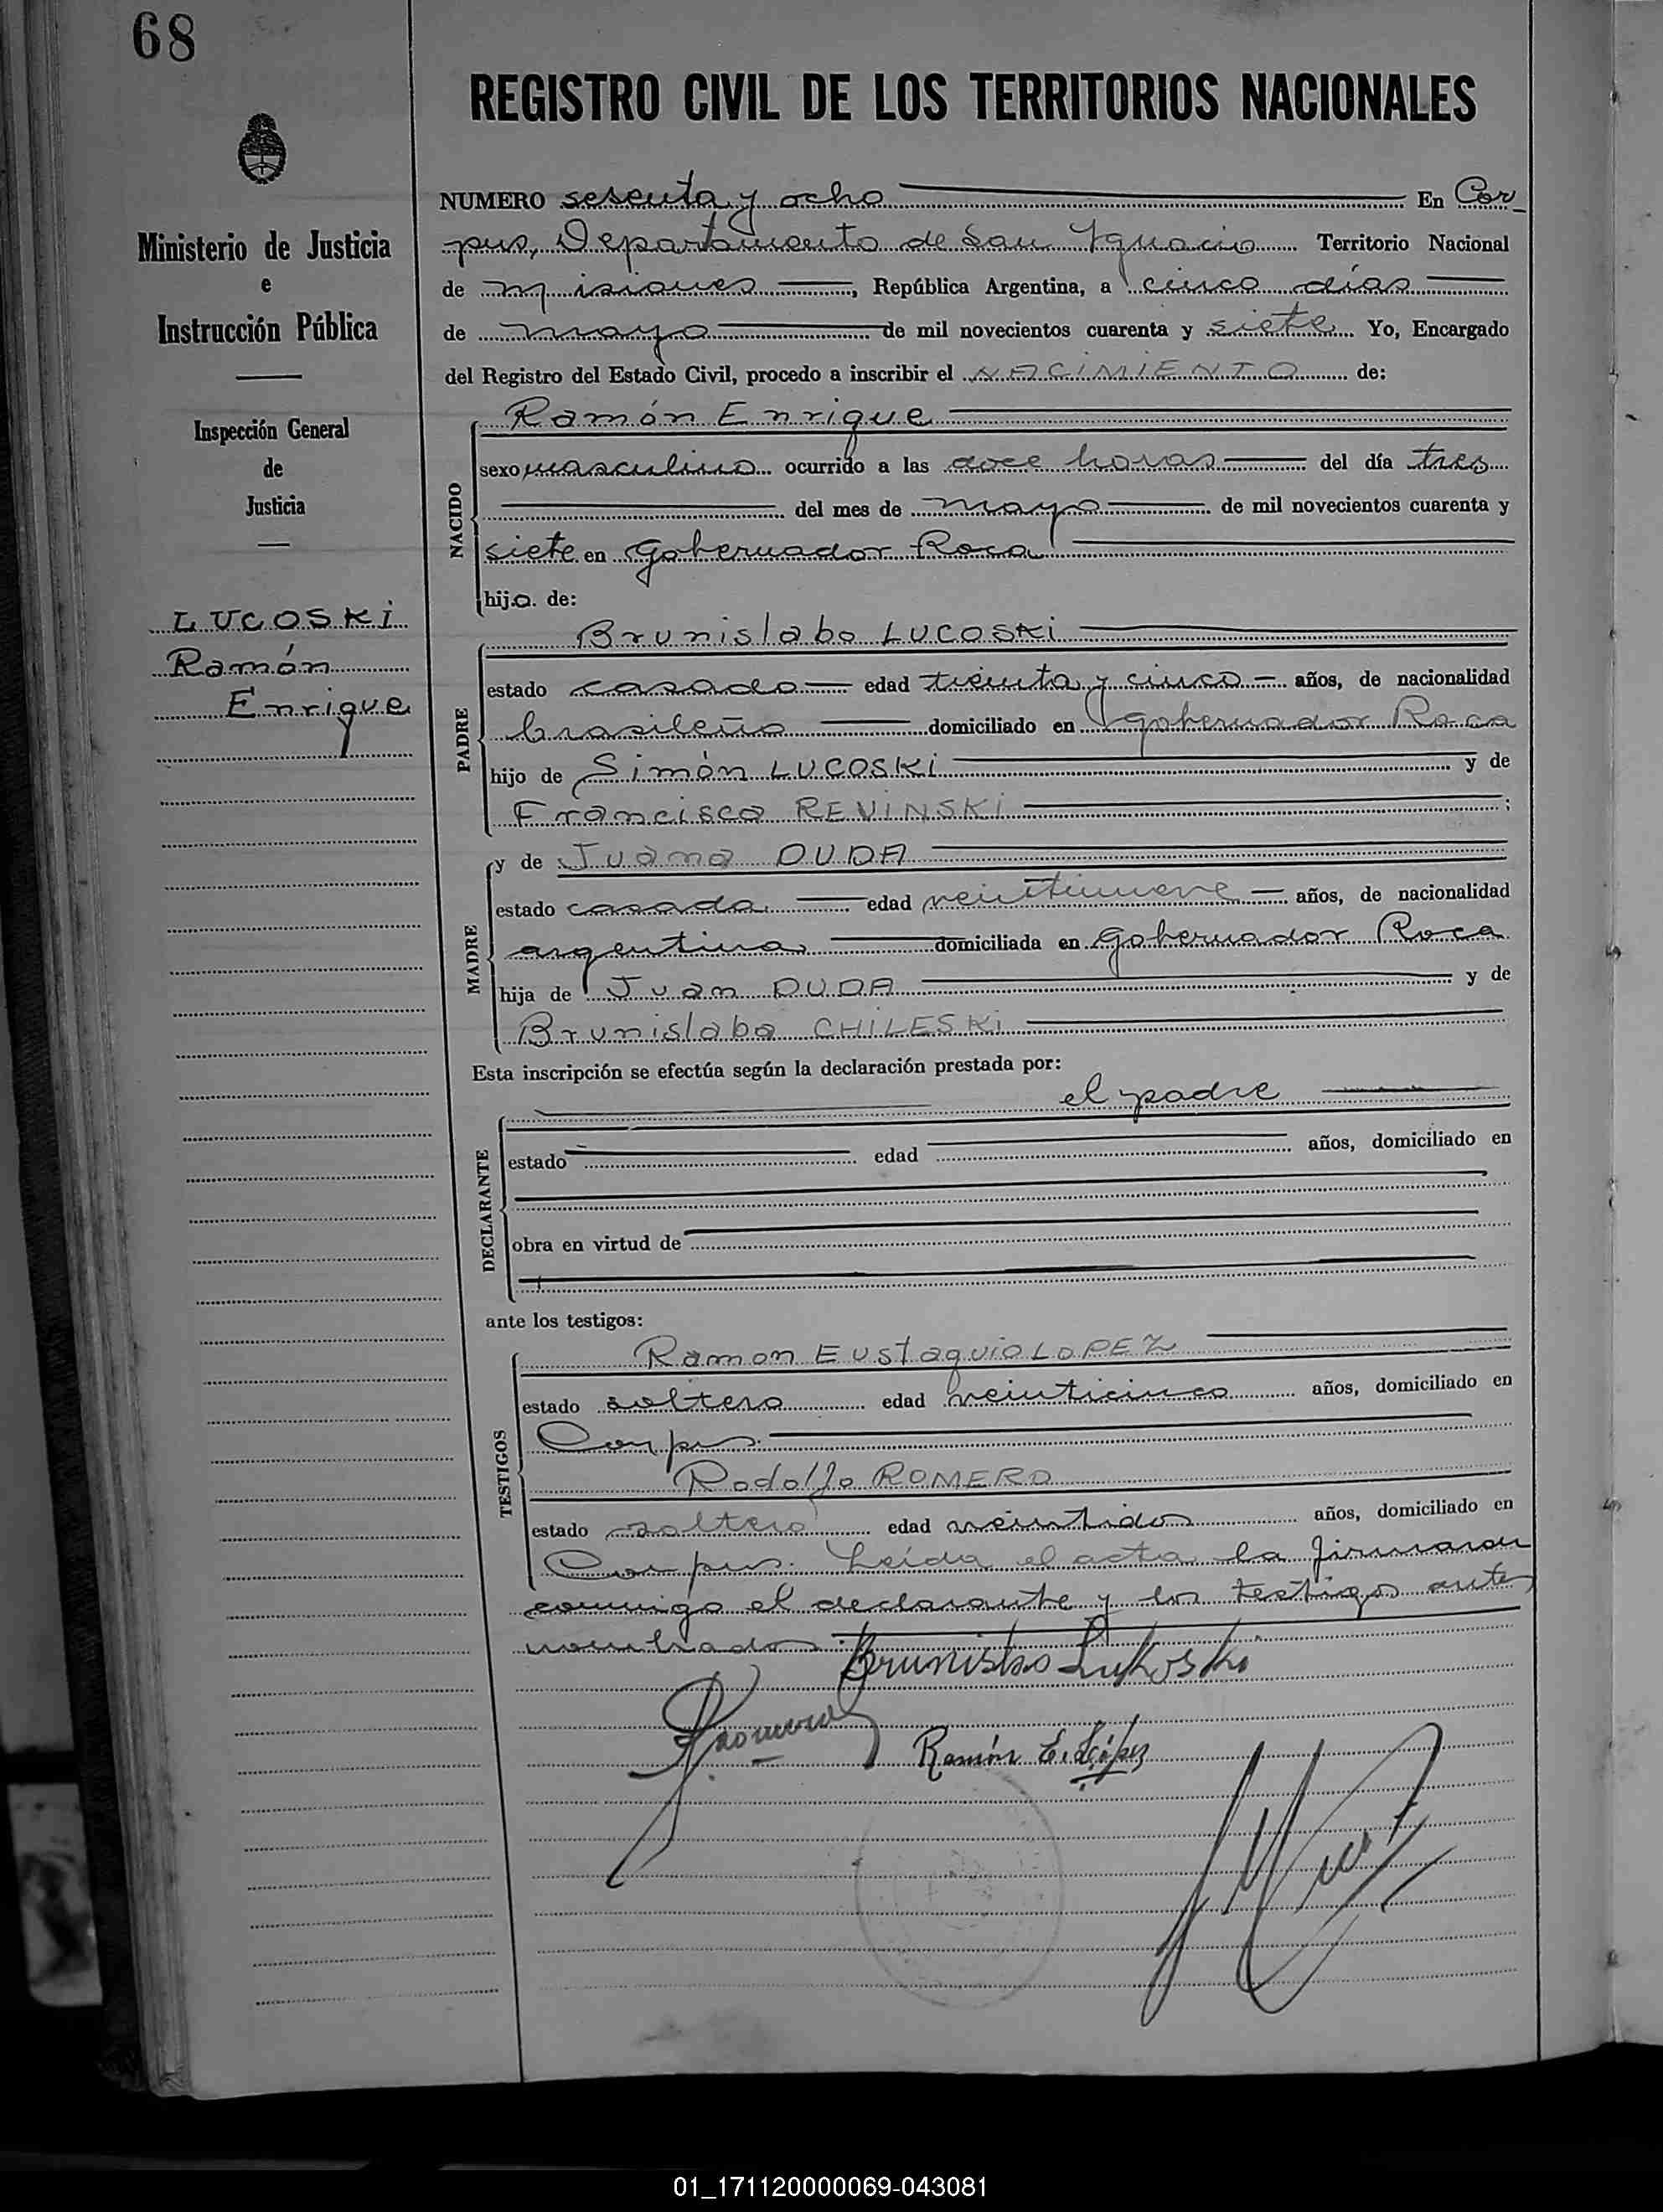 68
REGISTRO CIVIL DE LOS TERRITORIOS NACIONALES
Ministerio de Justicia
e
Instrucción Pública
Inspección General
de
Justicia
LUCOSKI
Ramón
Enrique
NUMERO sesenta y ocho En Cor_
pus, Departamento de San Ignacio Territorio Nacional
de Misiones, República Argentina, a cinco días
de mayo de mil novecientos cuarenta y siete Yo, Encargado
del Registro del Estado Civil, procedo a inscribir el NACIMIENTO de:
NACIDO
Ramón Enrique
sexo masculino ocurrido a las doce horas del día tres
del mes de mayo de mil novecientos cuarenta y
siete en Gobernador Roca
hijo de:
PADRE
Brunislabo LUCOSKI
estado casado edad treinta y cinco años, de nacionalidad
brasileño domiciliado en Gobernador Roca
hijo de Simón LUCOSKI y de
Francisca REVINSKI;
MADRE
y de Juana DUDA
estado casada edad veintinueve años, de nacionalidad
argentina domiciliada en Gobernador Roca
hija de Juan DUDA y de
Brunislaba CHILESKI
Esta inscripción se efectúa según la declaración prestada por:
DECLARANTE
el padre
estado edad años, domiciliado en
obra en virtud de
ante los testigos:
TESTIGOS
Ramon Eustaquio LOPEZ
estado soltero edad veinticinco años, domiciliado en
Corpus
Rodolfo ROMERO
estado soltero edad veintidos años, domiciliado en
Corpus. Leída el acta la firmaron
conmigo el declarante y los testigos ante
nombrados.
Brunislao Lukoski
Romero
Ramón E. López
01_171120000069-043081